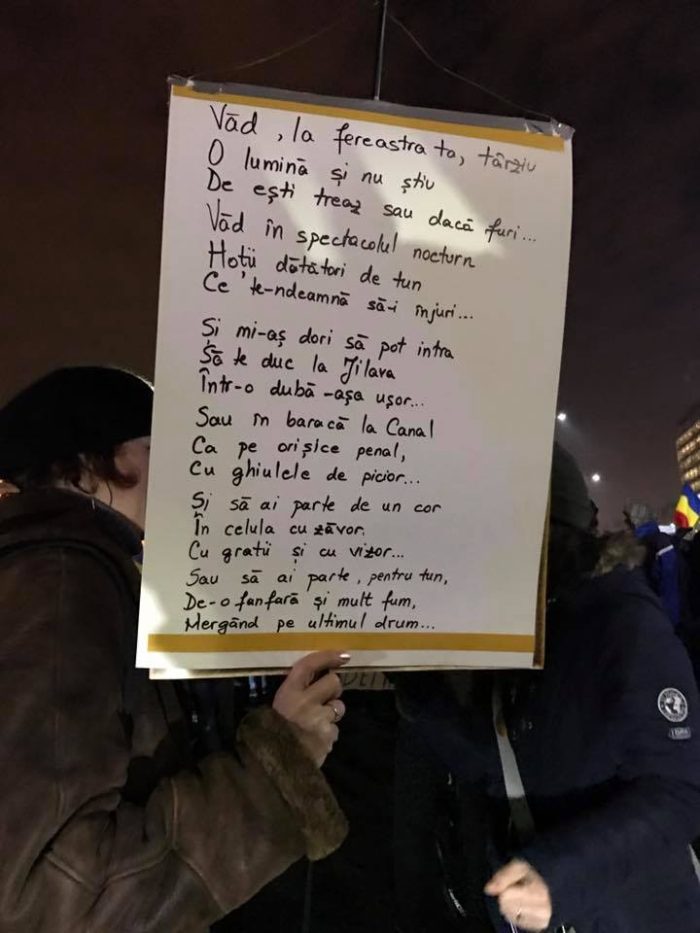 Văd, la fereastra ta, târziu
O lumină și nu știu
De ești treaz sau dacă furi...
Văd în spectacolul nocturn
Hoții dătători de tun
Ce te-ndeamnă să-i înjuri...
Și mi-aș dori să pot intra
Să te duc la Jilava
Într-o dubă -așa ușor...
Sau în baracă la Canal
Ca pe orișice penal,
Cu ghiulele de picior...
Și să ai parte de un cor
În celula cu zăvor
Cu gratii și cu vizor...
Sau să ai parte, pentru tun,
De-o fanfară și mult fum,
Mergând pe ultimul drum...